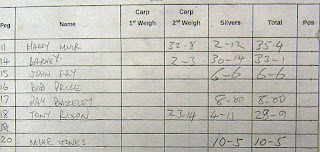 Peg Name Carp 1st Weigh Carp 2nd Weigh Silvers Total Pos
11 HARRY MUIR 32-8 2-12 35-4
14 BARNEY 2-3 30-14 33-1
15 JOHN FRY 6-6 6-6
16 BOB PRICE
17 RAY BAZELEY 8-00 8.00
18 TONY RIXON 23-14 4-11 28-9
20 MIKE JONES 10-5 10-5